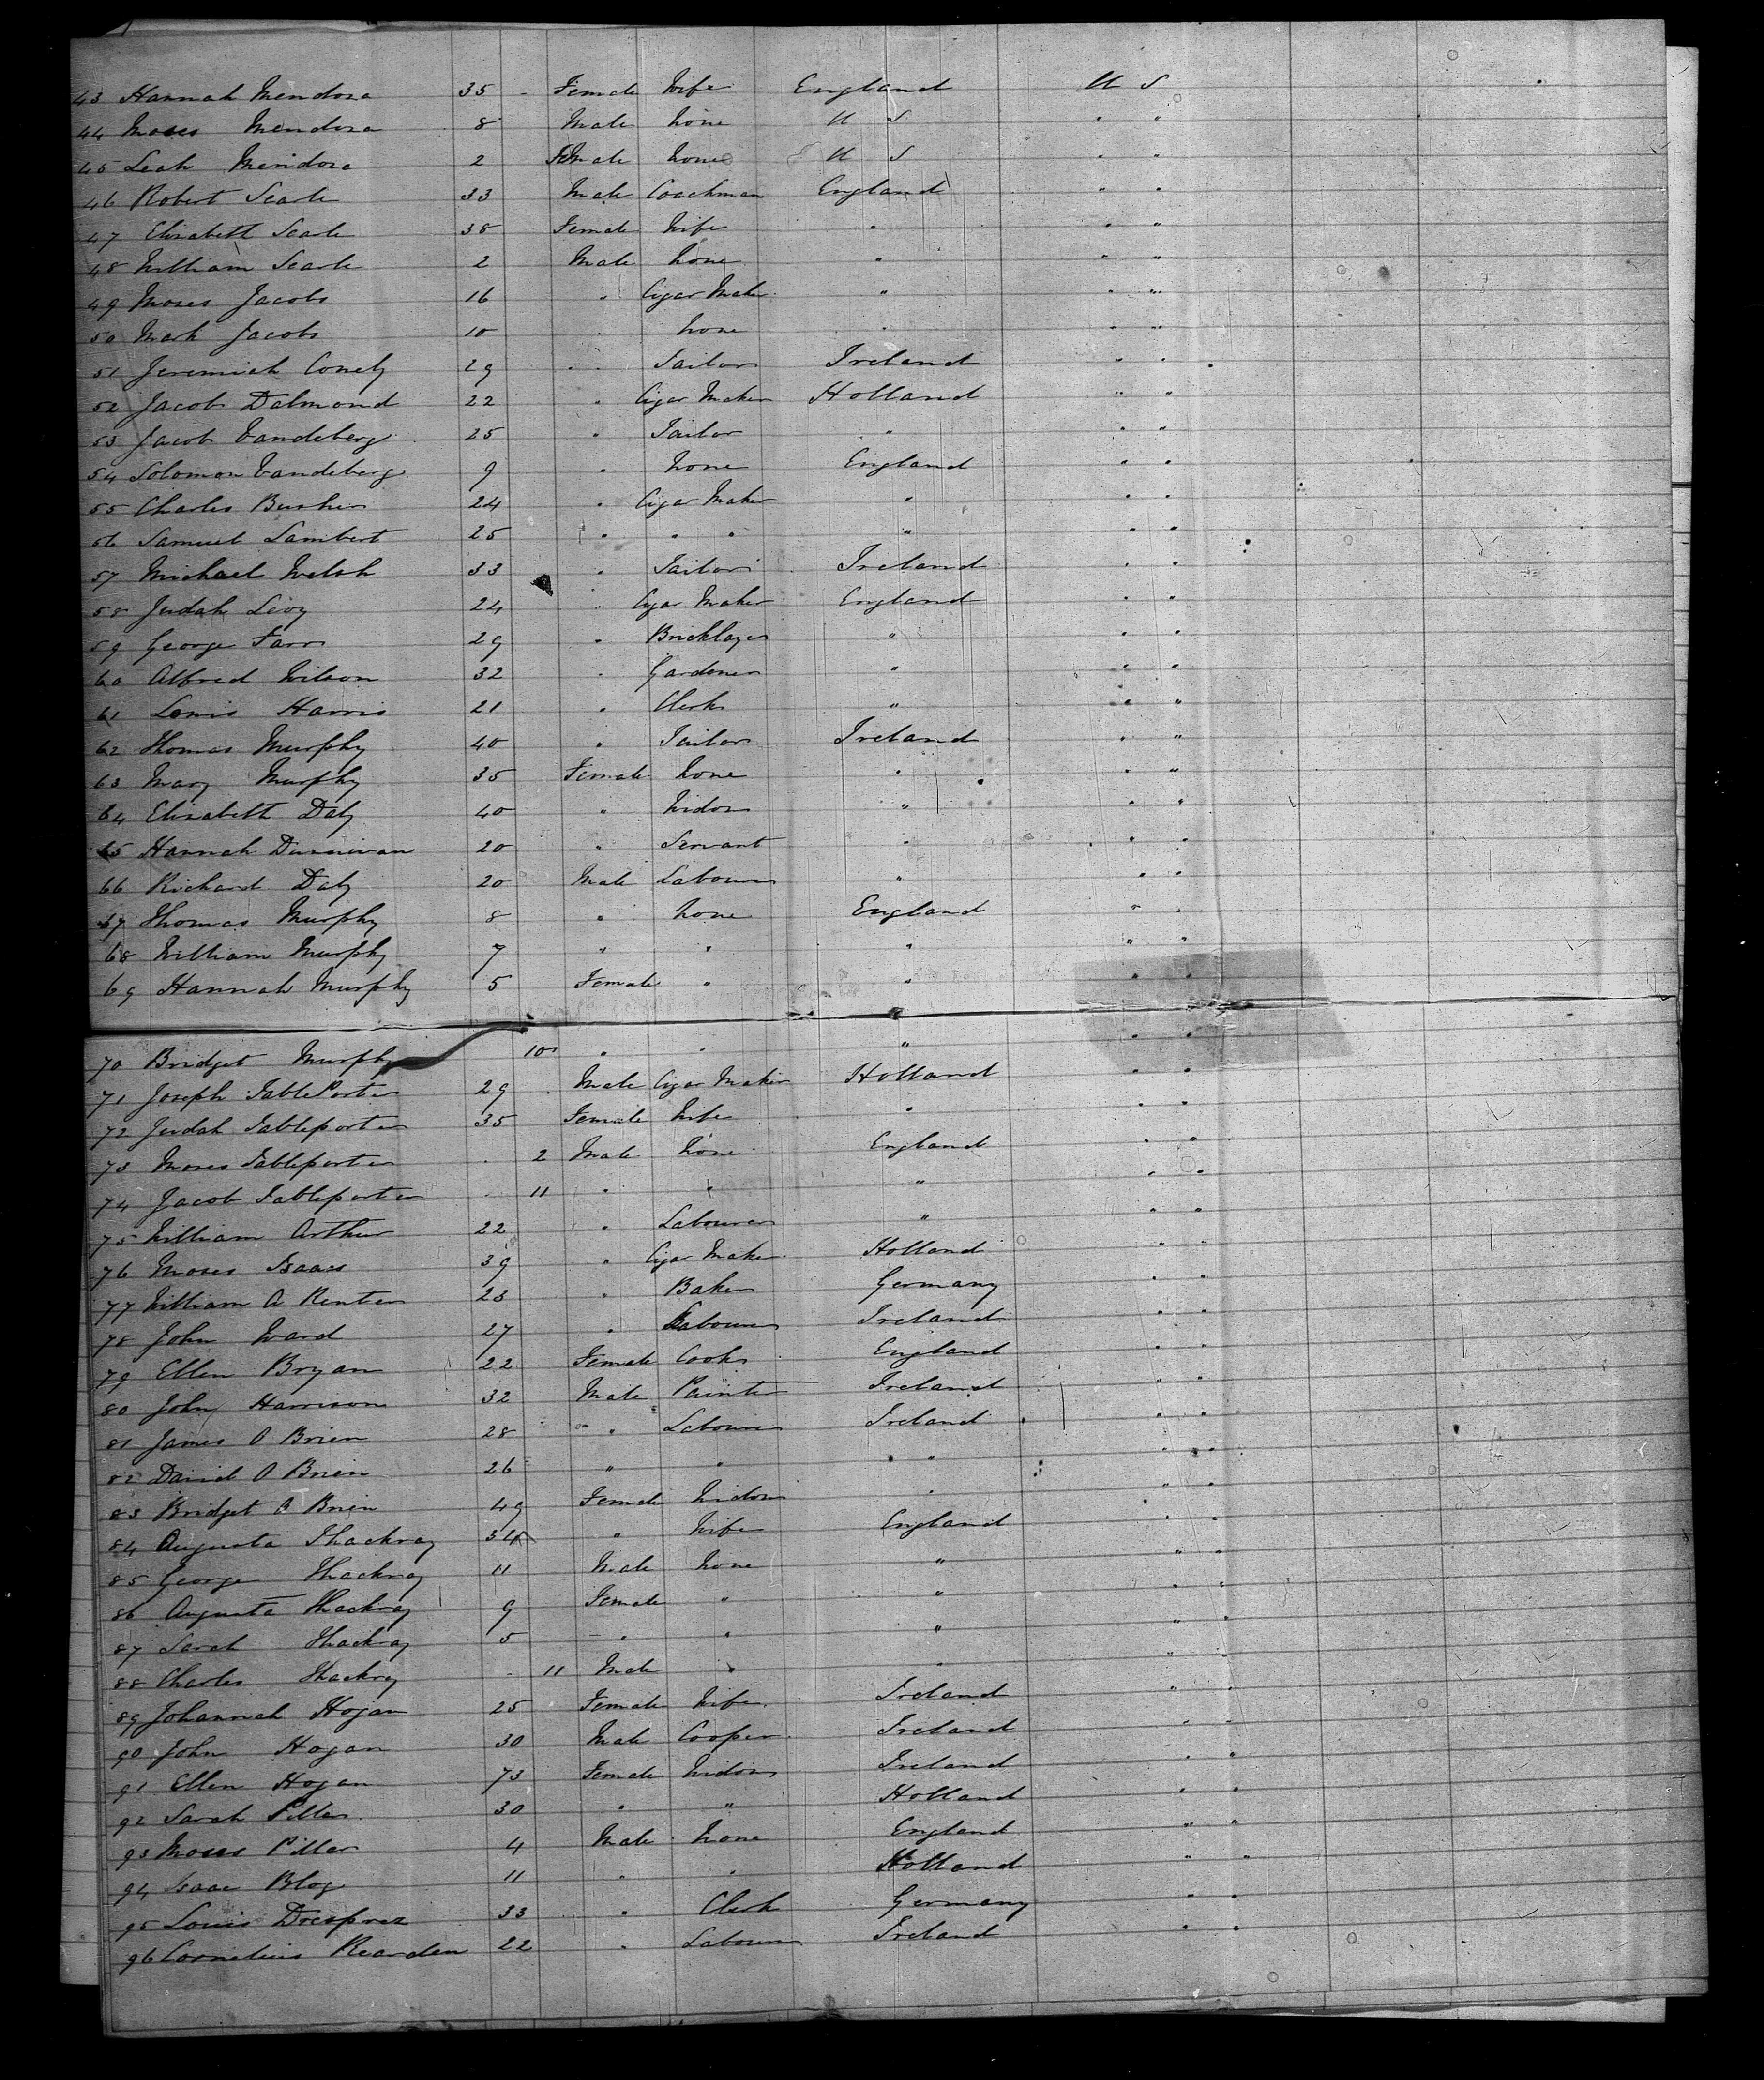 43 Hannah Mendoza 35 - Female Wife England U S
44 Moses Mendoza 8 Male None U S " "
45 Leah Mendoza 2 Female None U S " "
46 Robert Searle 33 Male Coachman England " "
47 Elizabeth Searle 38 Female Wife " " "
48 William Searle 2 Male None " " "
49 Moses Jacobs 16 " Cigar Maker " " "
50 Mark Jacobs 10 " None " " "
51 Jeremiah Conely 29 " Tailor Ireland " "
52 Jacob Dalmond 22 " Cigar Maker Holland " "
53 Jacob Vandeberg 25 " Tailor " " "
54 Solomon Vandeberg 9 " None England " "
55 Charles 24 " Cigar Maker " " "
56 Samuel Lambert 25 " " " " " "
57 Michael Welsh 33 " Tailor Ireland " "
58 Judah Levy 24 " Cigar Maker England " "
59 George Farr 29 " Bricklayer " " "
60 Alfred Wilson 32 " Gardener " " "
61 Louis Harris 21 " Clerk " " "
62 Thomas Murphy 40 " Tailor Ireland " "
63 Mary Murphy 35 Female None " " "
64 Elizabeth Daly 40 " Widow " " "
65 Hannah Dunnivan 20 " Servant " " "
66 Richard Daly 20 Male Labourer " " "
67 Thomas Murphy 8 " None England " "
68 William Murphy 7 " " " " "
69 Hannah Murphy 5 Female " " " "
70 Bridget Murphy 10 " " " " "
71 Joseph TablePorter 29 Male Cigar Maker Holland " "
72 Judah Tableporter 35 Female Wife " " "
73 Moses Tableporter 2 Male None England " "
74 Jacob Tableporter 11 " " " " "
75 William Arthur 22 " Labourer " " "
76 Moses Isaacs 39 " Cigar Maker Holland " "
77 William A Renter 23 " Baker Germany " "
78 John Ward 27 " Labourer Ireland " "
79 Ellen Bryan 22 Female Cook England " "
80 John Harrison 32 Male Painter Ireland " "
81 James O Brien 28 " Labourer Ireland " "
82 David O Brien 26 " " " " "
83 Bridget O Brien 49 Female Widow " " "
84 Augusta Thackray 34 " Wife England " "
85 George Thackray 11 Male None " " "
86 Augusta Thackray 9 Female " " " "
87 Sarah Thackray 5 " " " " "
88 Charles Thackray 11 Male " " " "
89 Johannah Hogan 25 Female Wife Ireland " "
90 John Hogan 30 Male Cooper Ireland " "
91 Ellen Hogan 73 Female Widow Ireland " "
92 Sarah Pillar 30 " " Holland " "
93 Moses Pillar 4 Male None England " "
94 Isaac Blog 11 " " Holland " "
95 Louis 33 " Clerk Germany " "
96 Cornelius Rearden 22 " Labourer Ireland " "